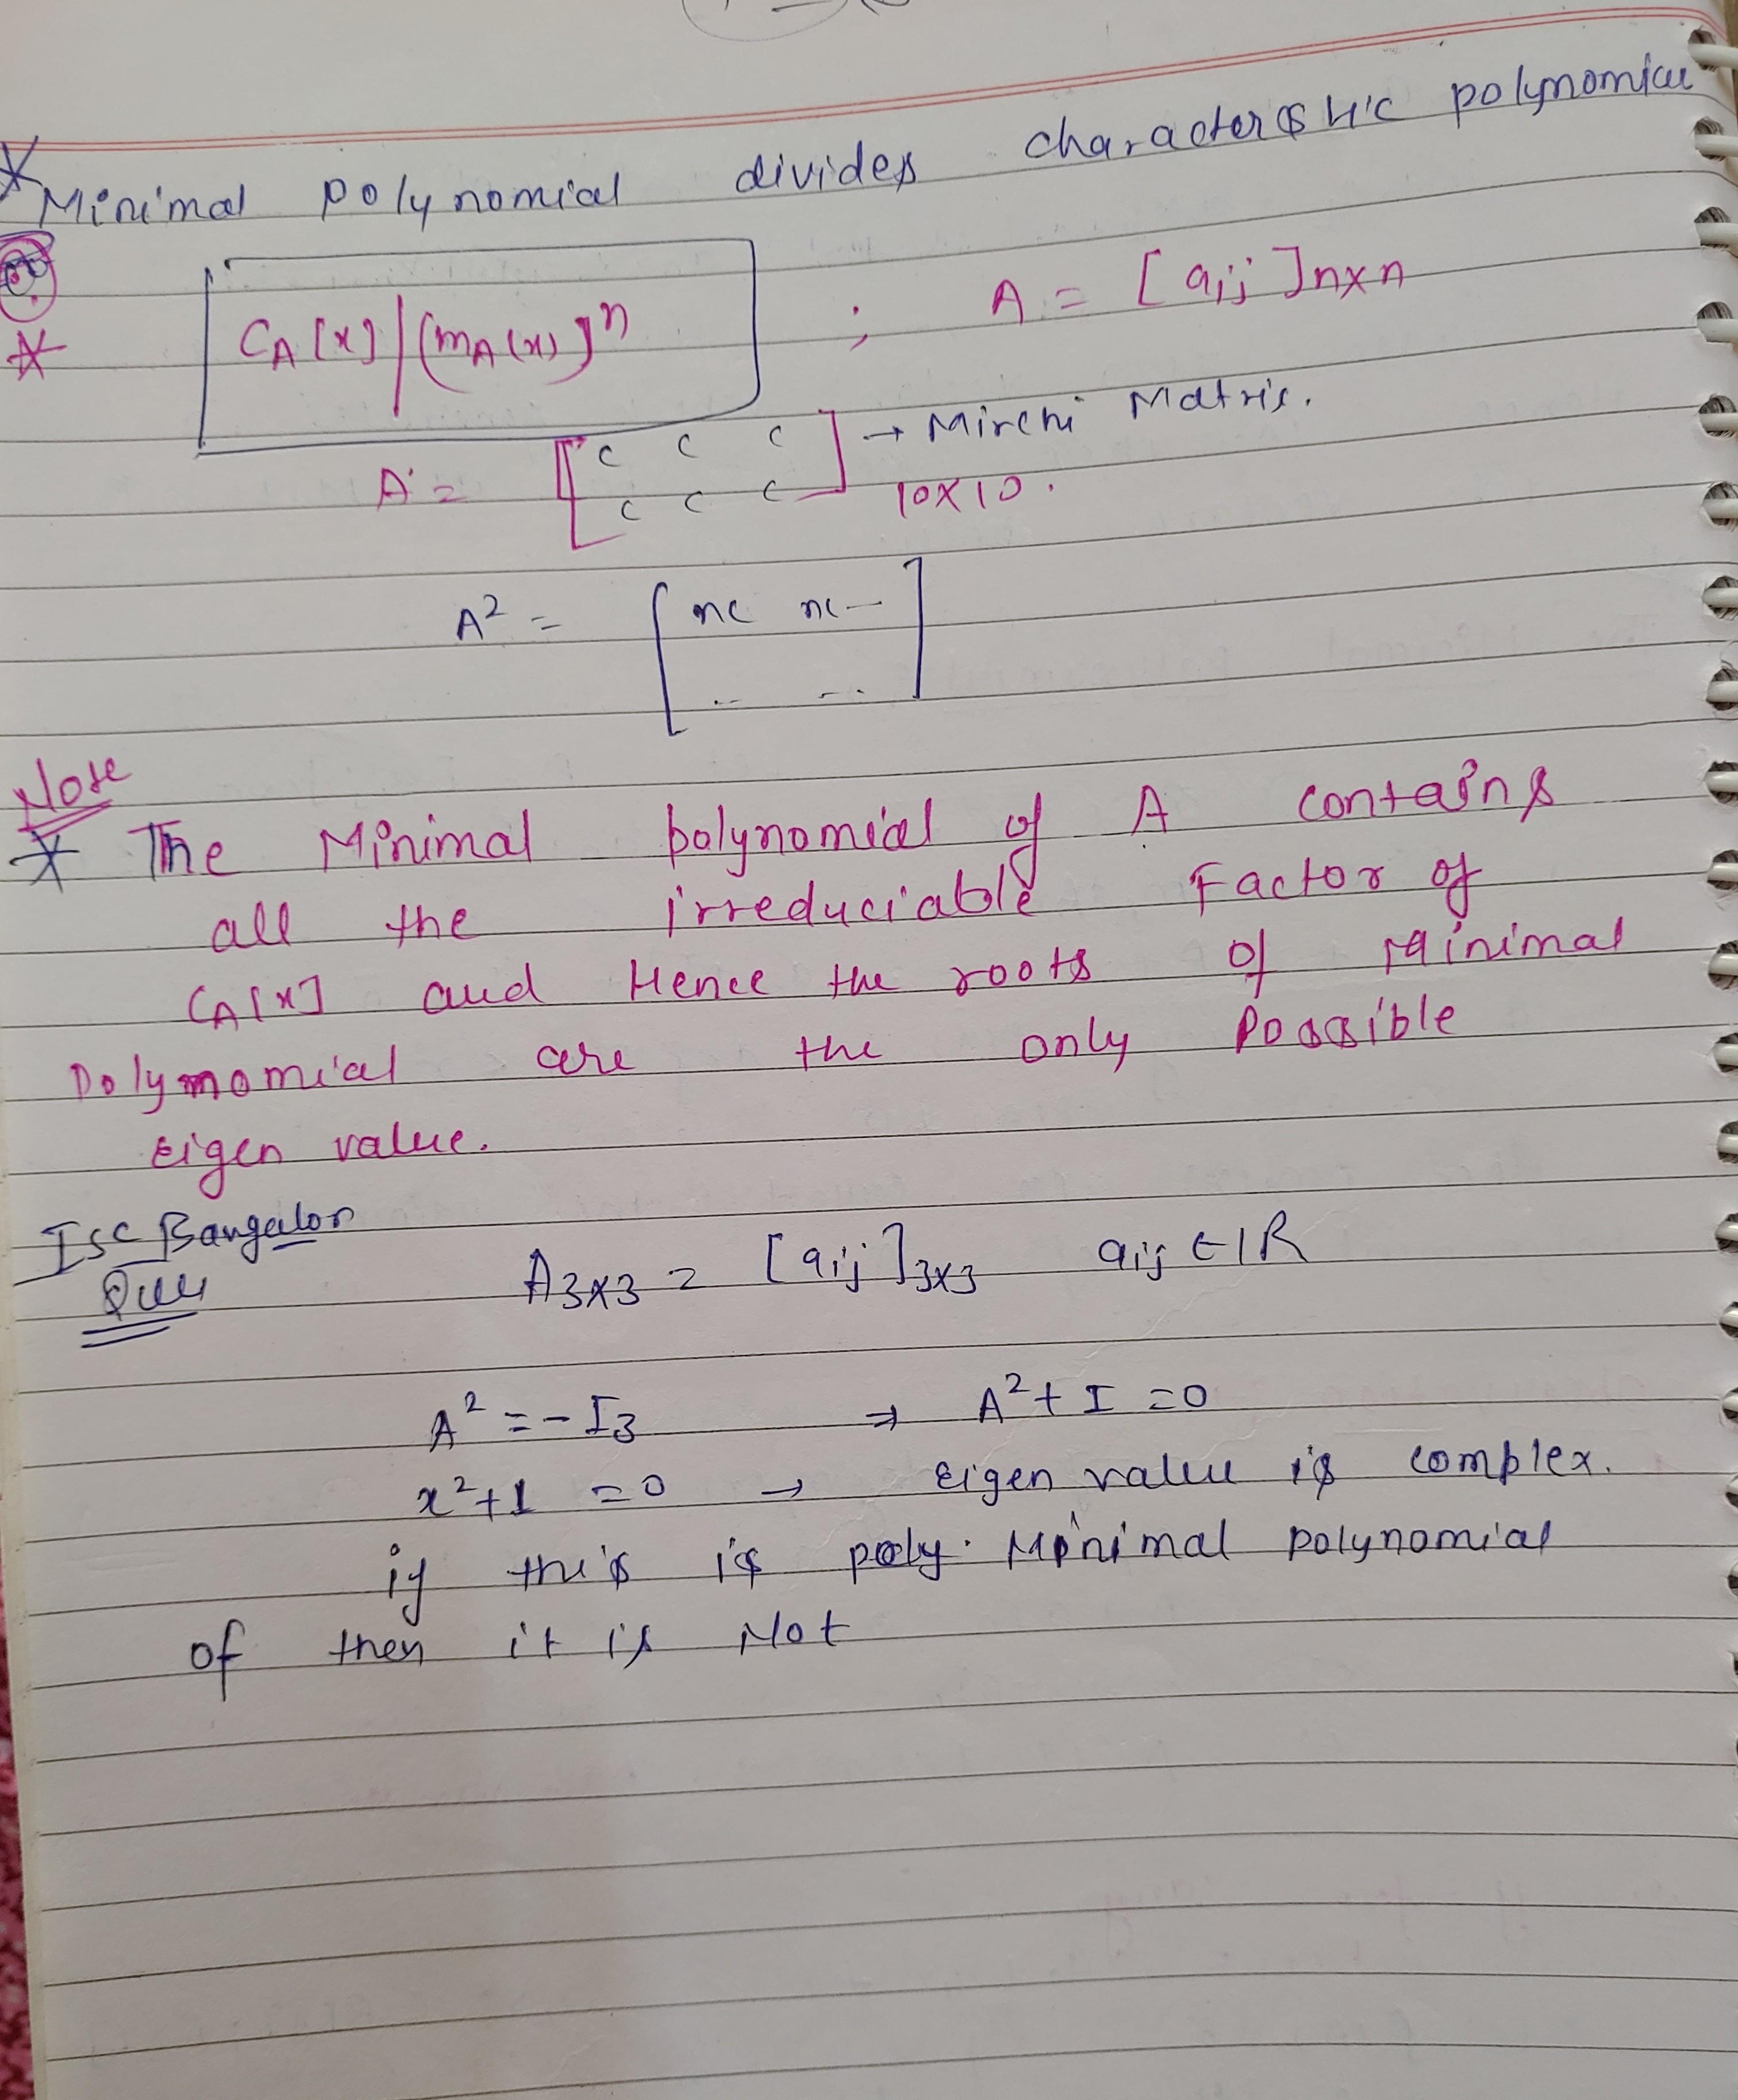 * Minimal polynomial divides characteristic polynomial
* C_A[x] | (m_A(x))^n ; A = [aij]n×n
A = [c c c → Mirchi Matrix.
c c c] 10×10.
A² = [nc nc —
.. ...]
Note
* The Minimal polynomial of A contains
all the irreduciable Factor of
C_A[x] and Hence the roots of Minimal
Polynomial are the only Possible
Eigen value.
Isc Bangalor
Que A3×3 = [aij]3×3 aij ∈ IR
A² = -I3 → A² + I = 0
x² + 1 = 0 → Eigen value is complex.
if this is poly. Minimal polynomial
of then it is Not